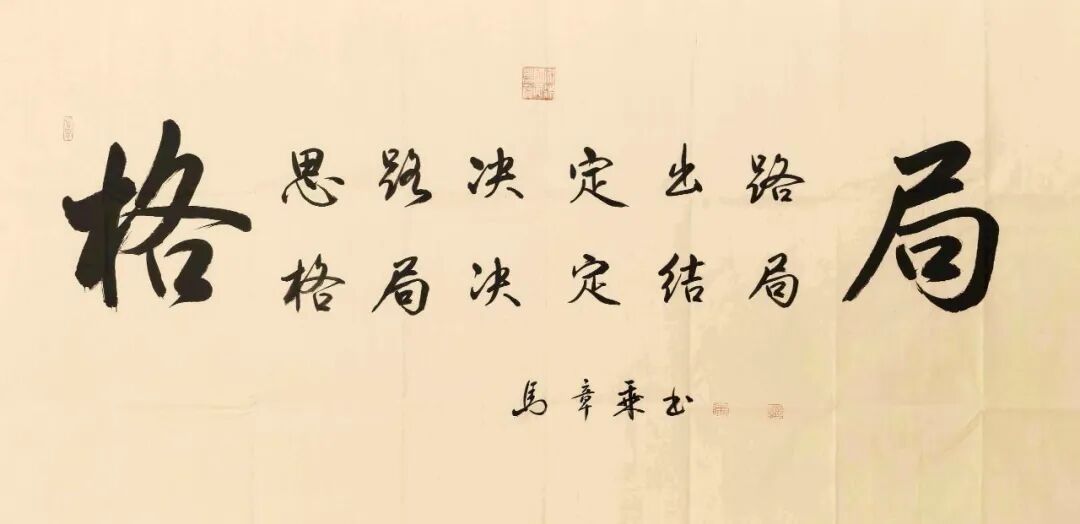 格 局
思路决定出路
格局决定结局
馬章乘书